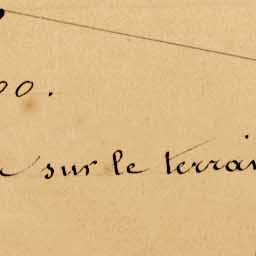 00.
sur le terrai